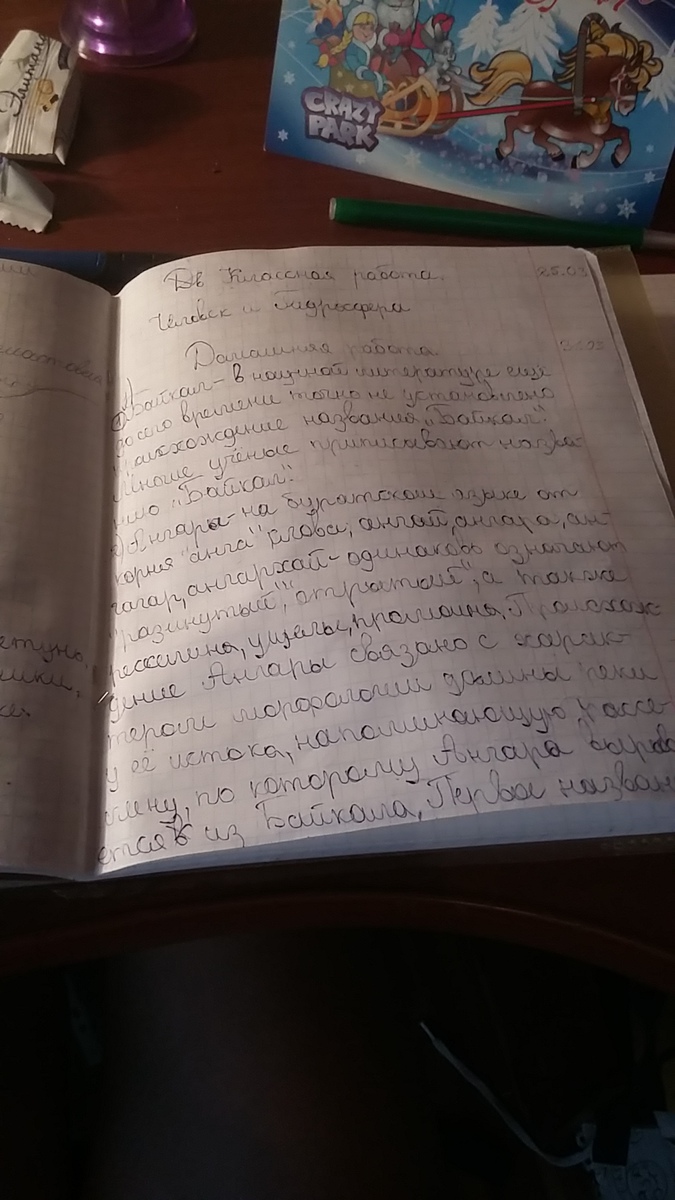 Элитан
CRAZY
PARK
Классная работа.
25.03
Человек и гидросфера
Домашняя работа
1)
1) Байкал - в научной литературе ещё
до сего времени точно не установлено
происхождение названия „Байкал".
Многие учёные приписывают назва-
нию „Байкал".
2) Ангара - на бурятском языке от
корня "анга", слова; ангай, ангара, ан-
гагар, ангархай - одинаково означают
"разинутый", "открытый", а также
расселина, ущелье, промоина. Происхож
дение Ангары связано с харак-
тером морфологии долины реки
у её истока, напоминающую, рассе-
лину, по которому Ангара вырыва
ется из Байкала, Первое назван